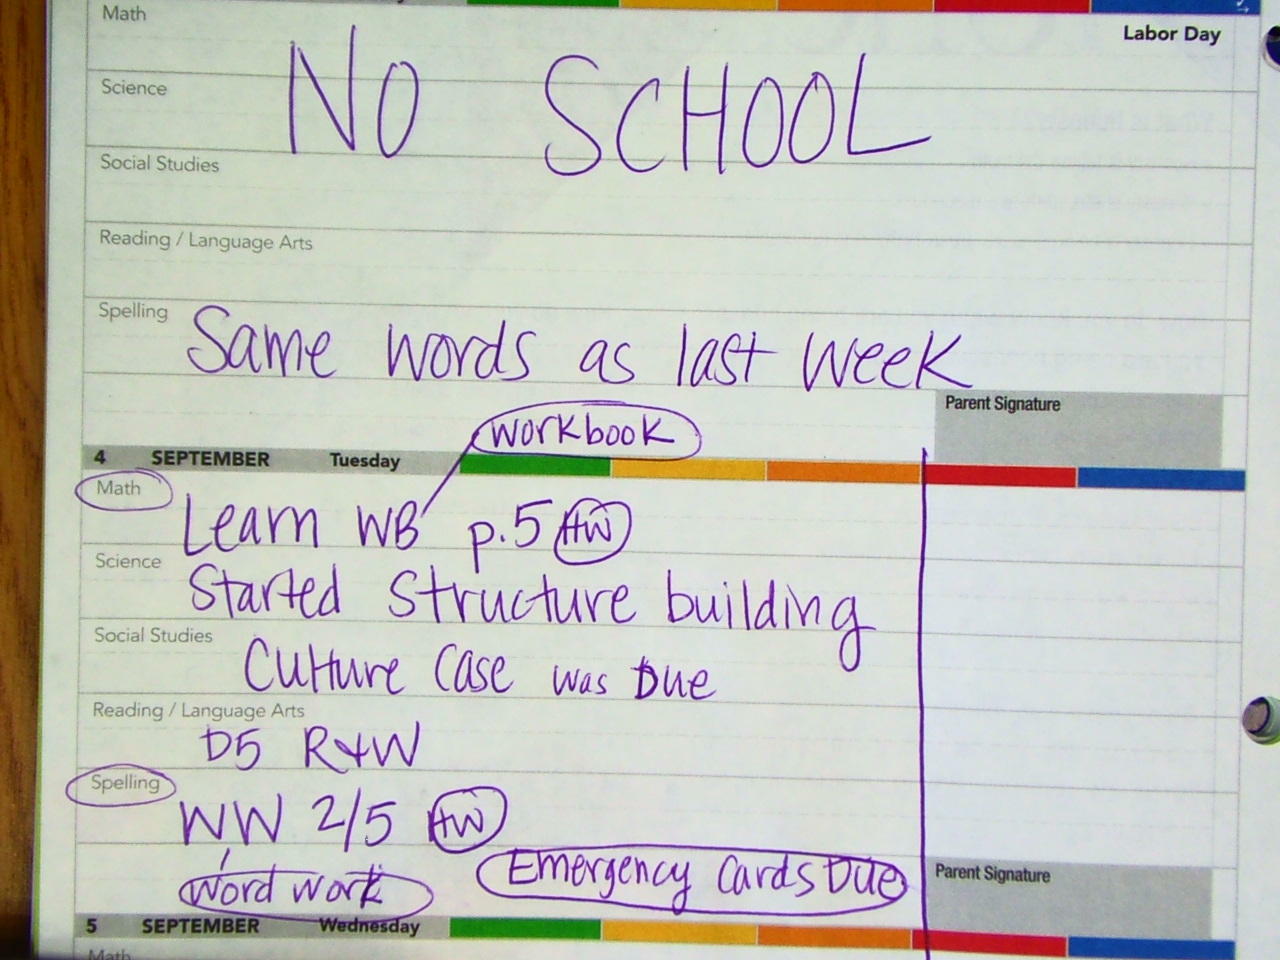 Math
Labor Day
NO SCHOOL
Science
Social Studies
Reading / Language Arts
Spelling
Same words as last week
Parent Signature
workbook
4 SEPTEMBER Tuesday
Math
Learn WB p.5 HW
Science
Started structure building
Social Studies
Culture Case was Due
Reading / Language Arts
D5 R+W
Spelling
WW 2/5 HW
Word work
Emergency Cards Due
Parent Signature
5 SEPTEMBER Wednesday
Math